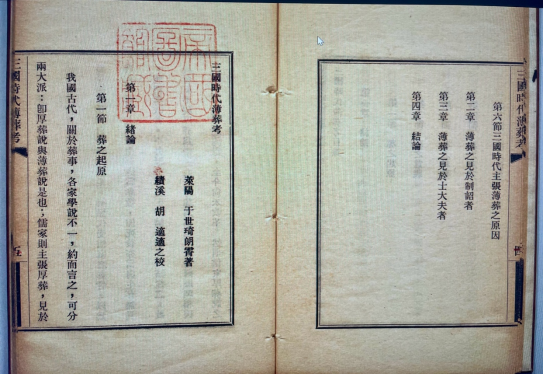 第六節三國時代主張薄葬之原因
第二章　薄葬之見於制詔者
第三章　薄葬之見於士大夫者
第四章　結論
三國時代薄葬考
三國時代薄葬考
萊陽　于世琦朗霄著
績溪　胡　適適之校
第一章　緒論
第一節　葬之起原
我國古代，關於葬事，各家學說不一，約而言之，可分
兩大派：卽厚葬說與薄葬說是也；儒家則主張厚葬，見於
三國時代薄葬考